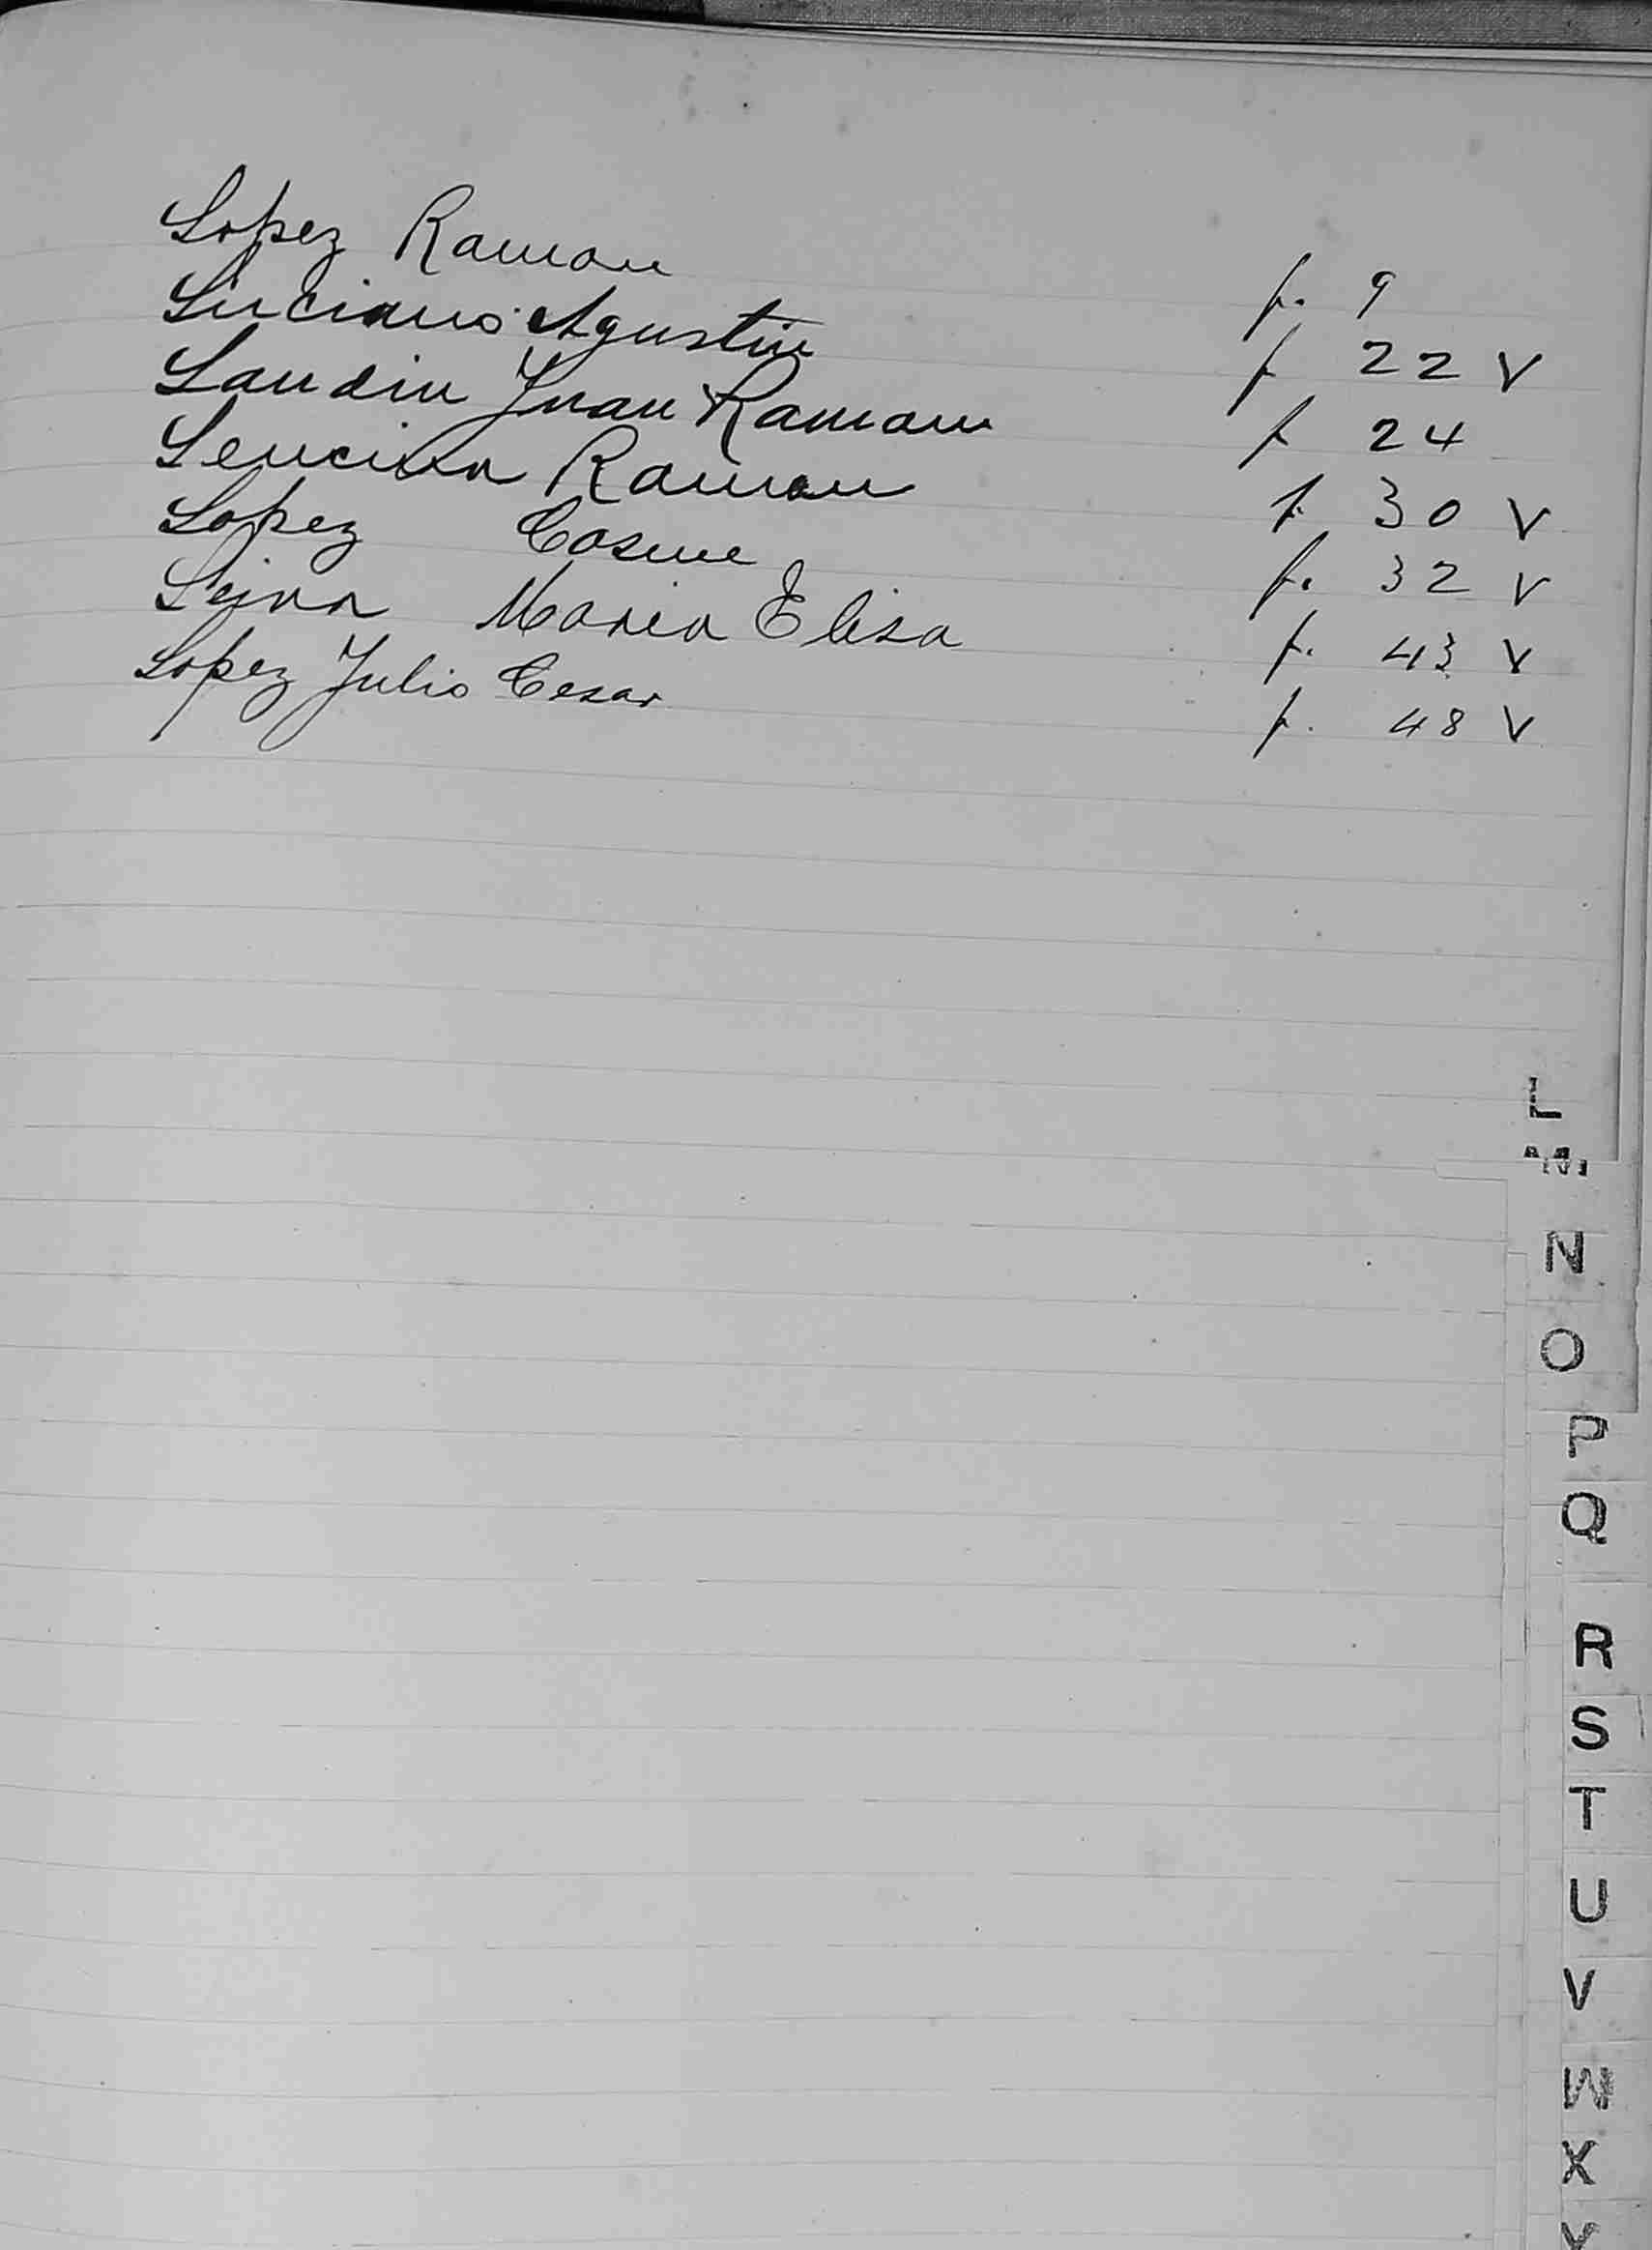 Lopez Ramon f. 9
Luciano Agustin f 22 V
Landin Juan Ramon f 24
Lencina Ramon f. 30 V
Lopez Cosme f. 32 V
Leiva Maria Elisa f. 43 V
Lopez Julio Cesar f. 48 V
L
N
O
P
Q
R
S
T
U
V
W
X
Y